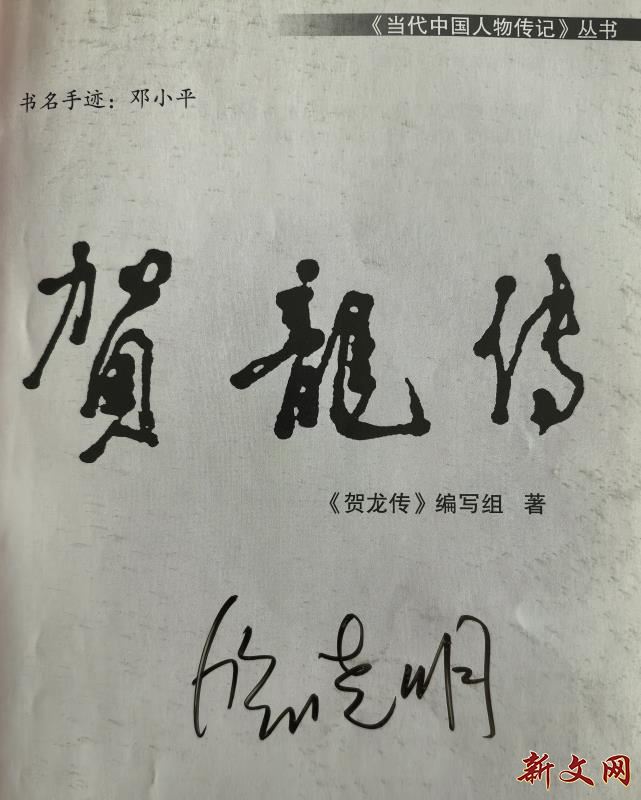 《当代中国人物传记》丛书
书名手迹：邓小平
賀龍传
《贺龙传》编写组 著
新文网